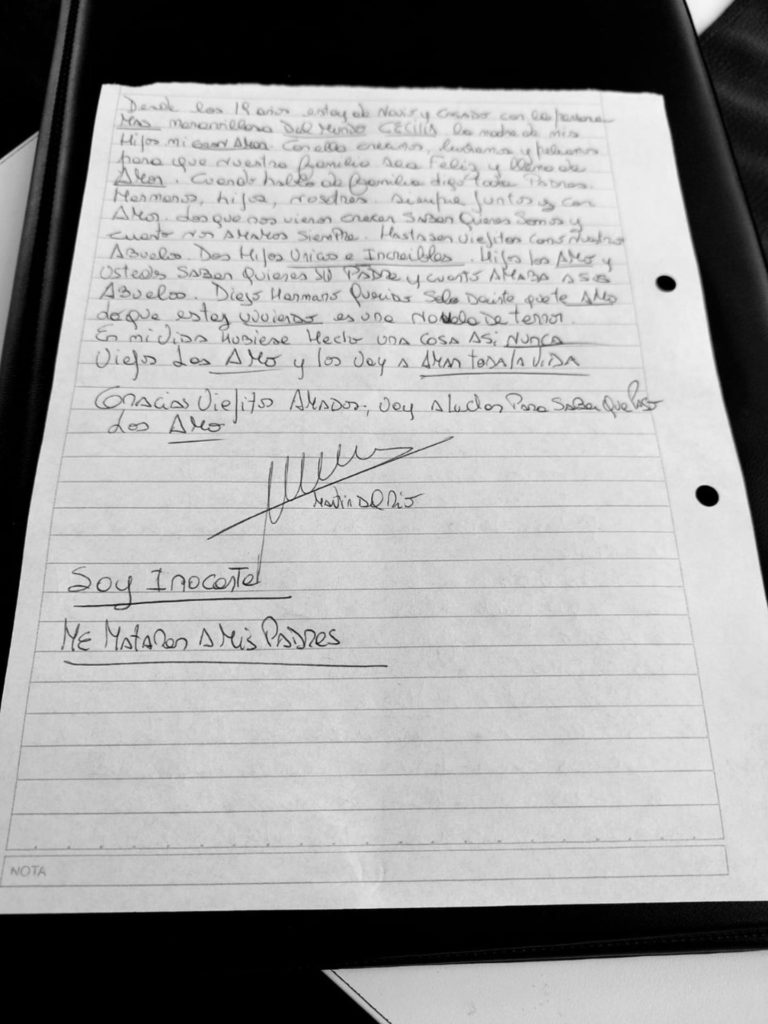 Desde los 19 años estoy de Novio y Casado con la persona
Mas maravillosa Del Mundo CECILIA la madre de mis
Hijos mi gran AMOR. Con ella crecimos, luchamos y peleamos
para que nuestra familia sea Feliz y llena de
AMOR. Cuando hablo de familia digo todos Padres
Hermanos, hijos, nosotros. siempre juntos y con
AMOR. Los que nos vieron crecer SABEN Quienes Somos y
cuanto nos AMAMOS Siempre. Hasta ser viejitos como nuestros
Abuelos. Dos Hijos Unicos e Increibles. Hijos los AMO y
Ustedes SABEN Quien es SU PADRE y cuanto AMABA A SUS
Abuelos. Diego Hermano Querido Solo Decirte que te AMO
Lo que estoy viviendo es una Novela De terror.
En mi vida Hubiese Hecho una COSA ASi NUNCA
Viejos Los AMO y los voy a AMAR toda la VIDA
Gracias Viejitos AMADOS, voy a luchar Para SABER Que Paso
Los AMO
Martin Del Rio
Soy Inocente
ME MATARON A Mis PADRES
NOTA